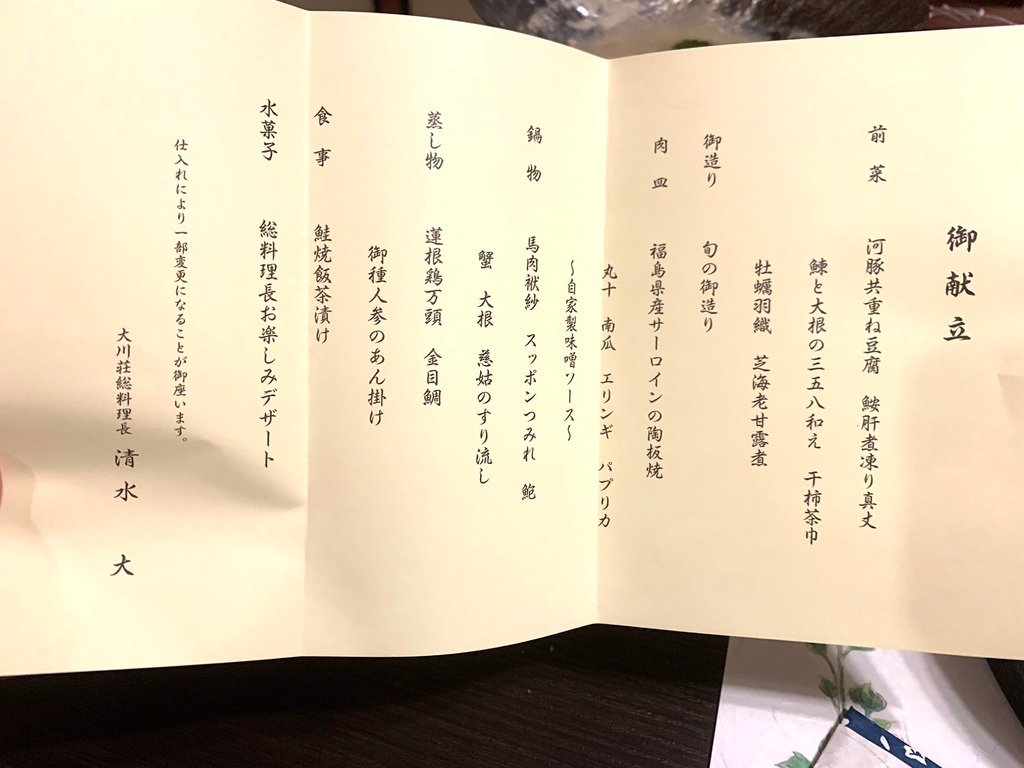 御献立
前菜 河豚共重ね豆腐 鮟肝煮凍り真丈
鰊と大根の三五八和え 干柿茶巾
牡蠣羽織 芝海老甘露煮
御造り 旬の御造り
肉皿 福島県産サーロインの陶板焼
丸十 南瓜 エリンギ パプリカ
～自家製味噌ソース～
鍋物 馬肉袱紗 スッポンつみれ 鮑
蟹 大根 慈姑のすり流し
蒸し物 蓮根鶏万頭 金目鯛
御種人参のあん掛け
食事 鮭焼飯茶漬け
水菓子 総料理長お楽しみデザート
仕入れにより一部変更になることが御座います。
大川荘総料理長 清水 大